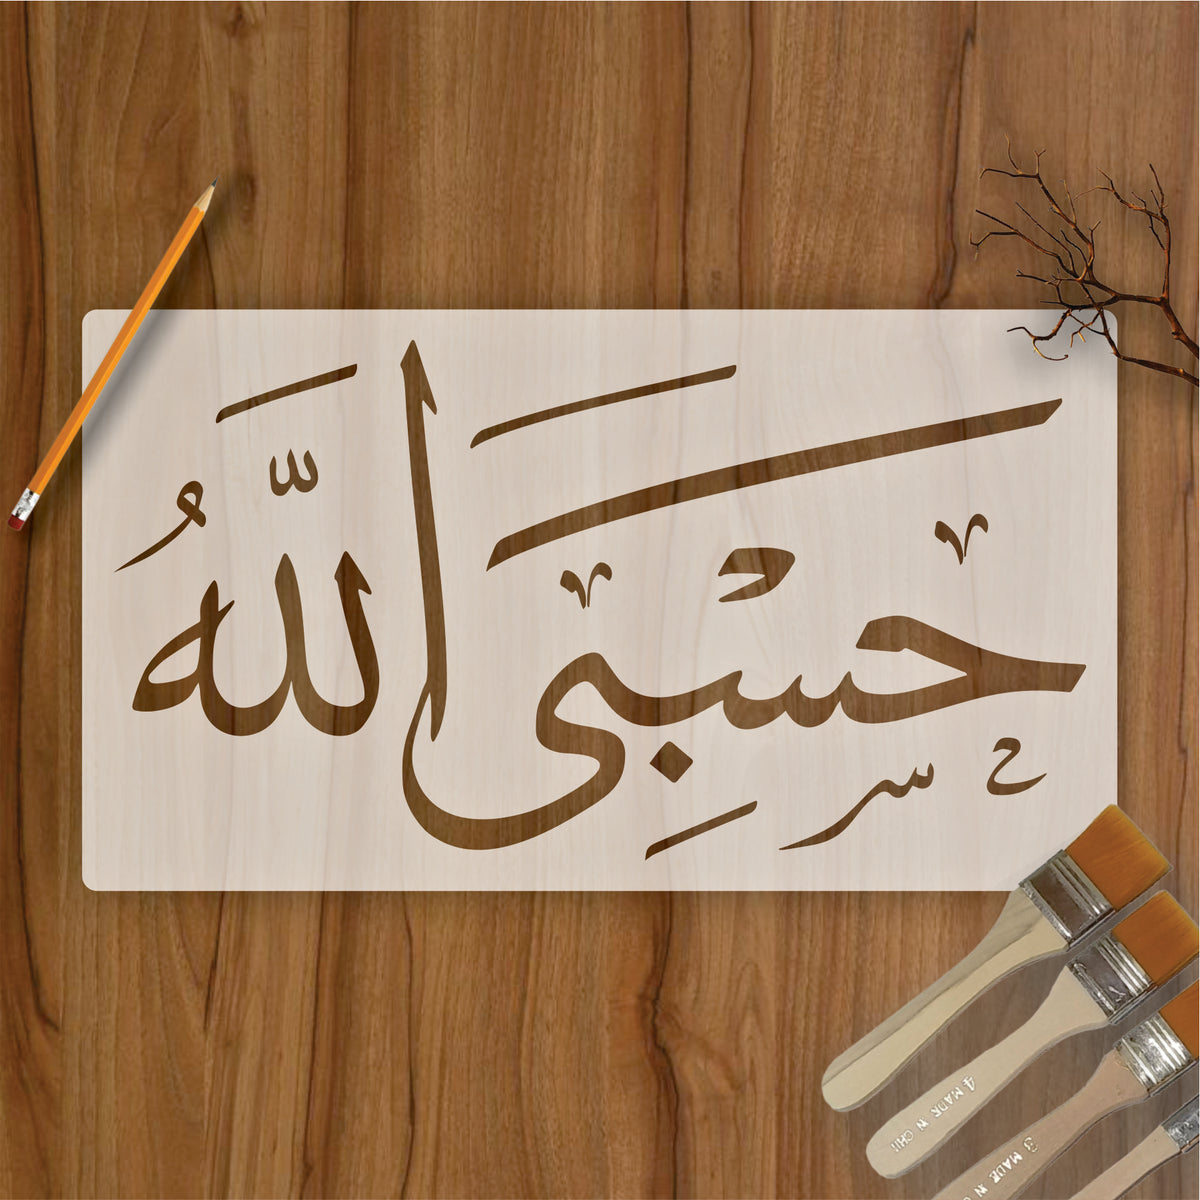 حَسْبِيَ اللَّهُ
4 MADE N CHI
3 MADE N